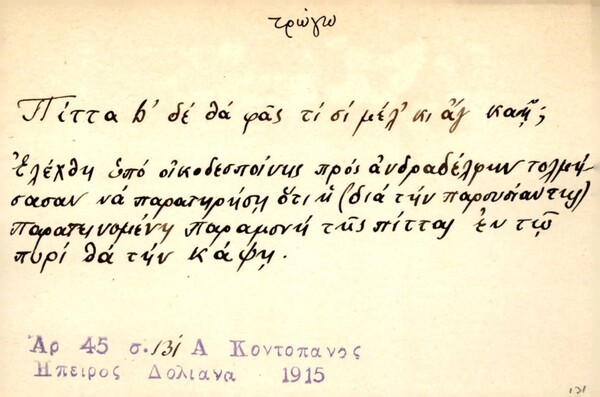 τρώγω
Πίττα π' δέ θά φᾶς τί σί μέλ' κι ἄγ καῇ;
Ἐλέχθη ὑπό οἰκοδεσποίνης πρός ἀνδραδέλφην τολμή-
σασαν νά παρατηρήση ὅτι ἡ (διά τήν παρουσίαν της)
παρατεινομένη παραμονή τῆς πίττας ἐν τῷ
πυρί θά τήν κάψῃ.
Αρ 45 σ. 131 Α Κοντοπανος
Ηπειρος Δολιανα 1915
131